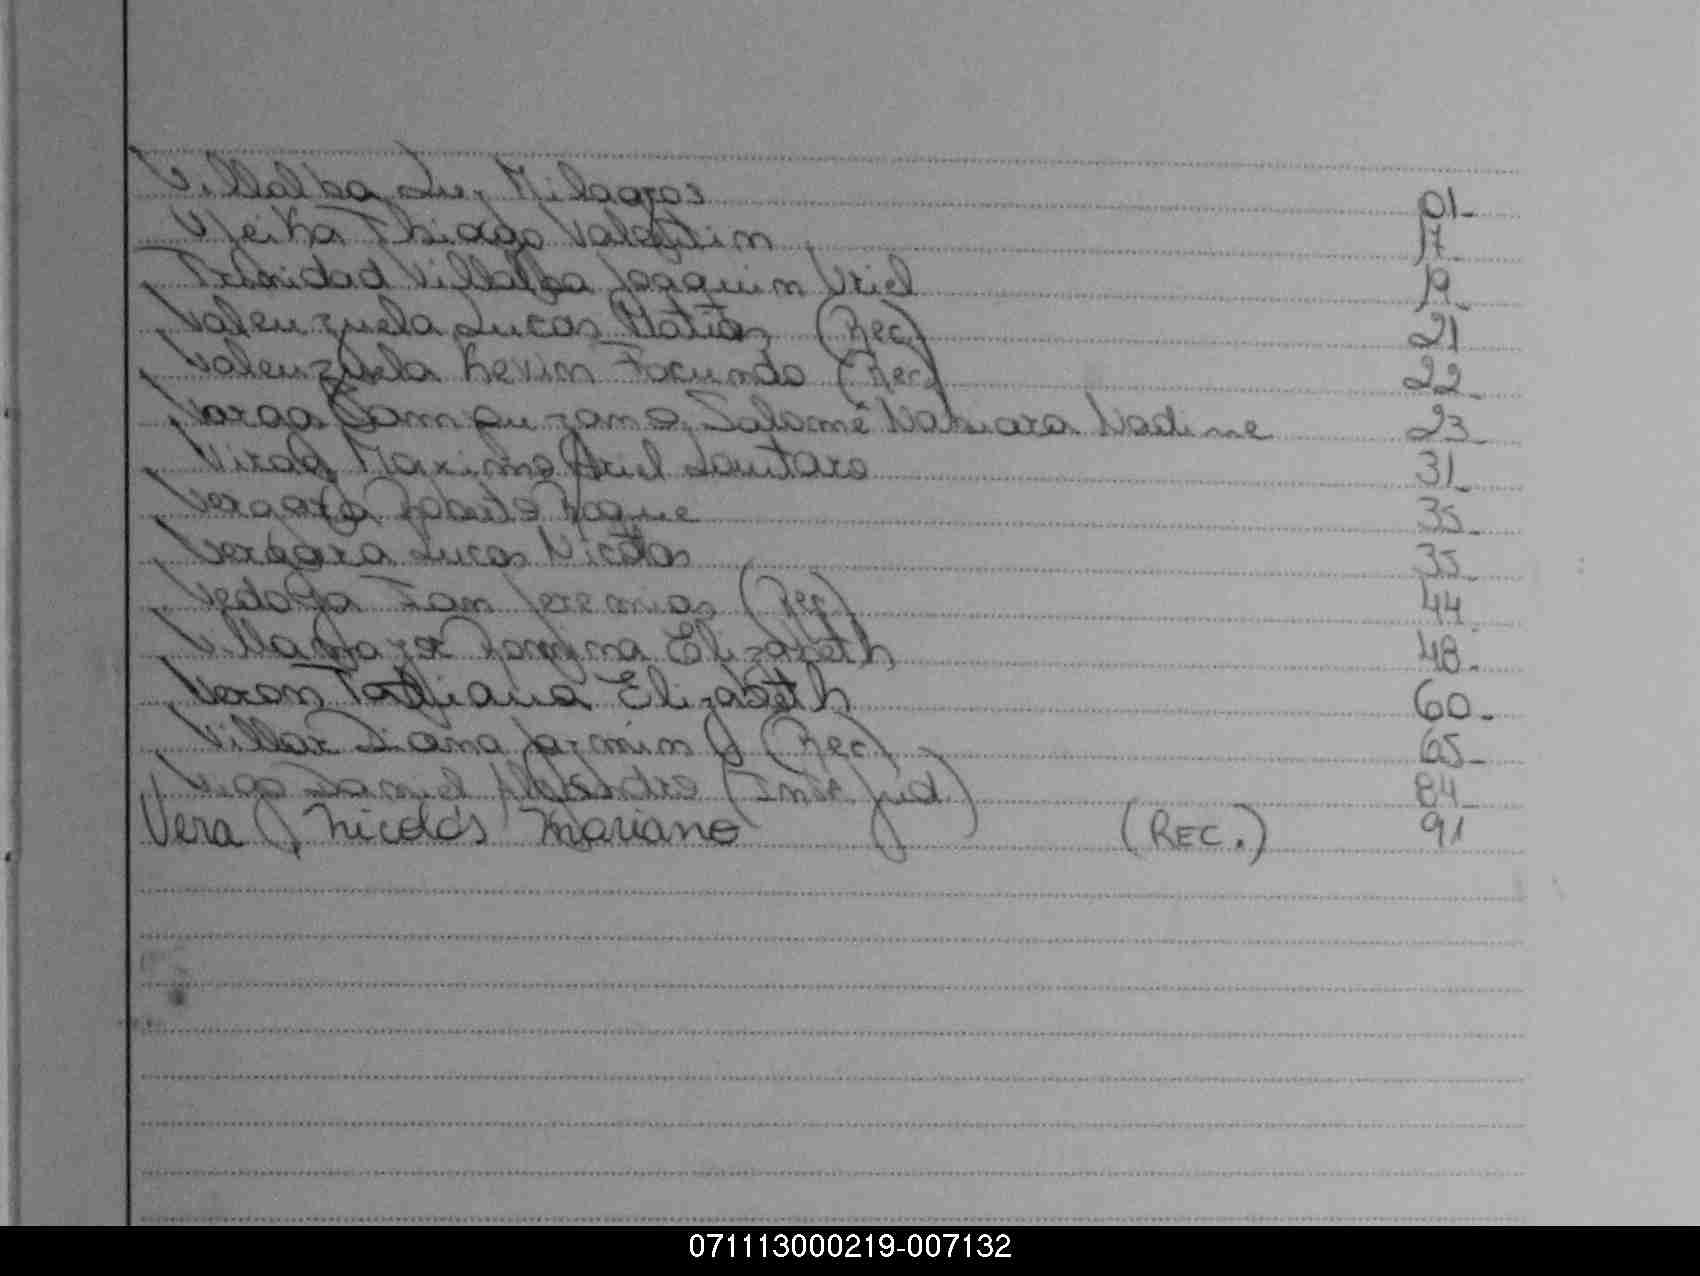 Villalba Luz Milagros 01-
Thiago Valentin 17-
Trinidad Villalba Joaquin Uriel 19-
Valenzuela Lucas Matias (Rec) 21
Valenzuela Kevin Facundo (Rec) 22-
Varga Campuzano Salomé Nadine 23-
Maximo Ariel Lautaro 31-
Vergara Roberto Roque 35-
Vergara Lucas Nicolas 35-
Vedoya Ian Jeremias (Rec) 44-
Romina Elizabeth 48-
Veron Tatiana Elizabeth 60-
Villar Diana Jazmin (Rec) 65-
Vigo Daniel Alejandro (Insc Jud.) 84-
Vera Nicolás Mariano (REC.) 91
071113000219-007132